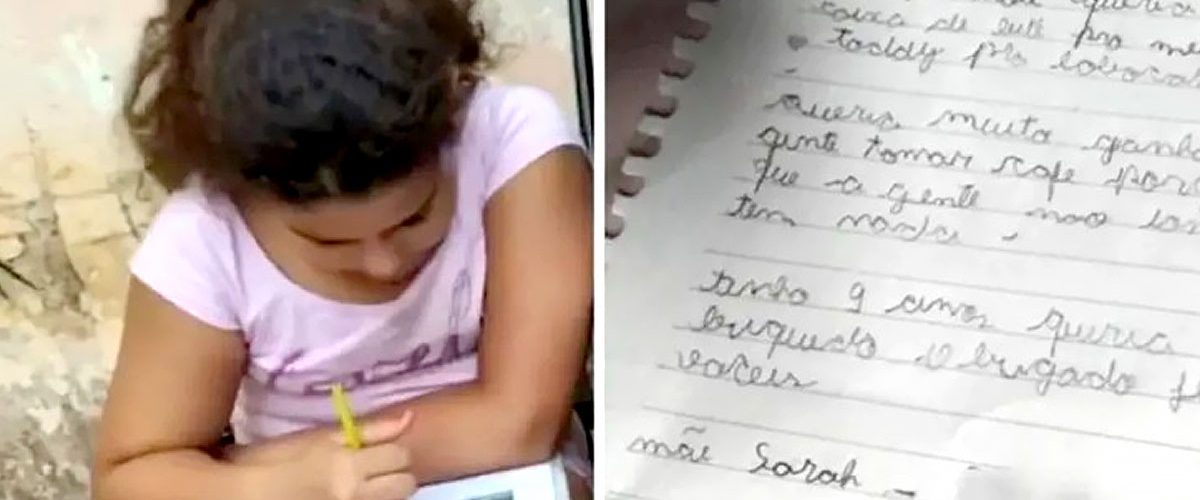 caixa de leite pro me
toddy pra
queria muito ganha
gente tomar cafe por
que a gente nao
tem nada.
tenho 9 anos queria
briquedo obrigado
voceis
mãe Sarah -